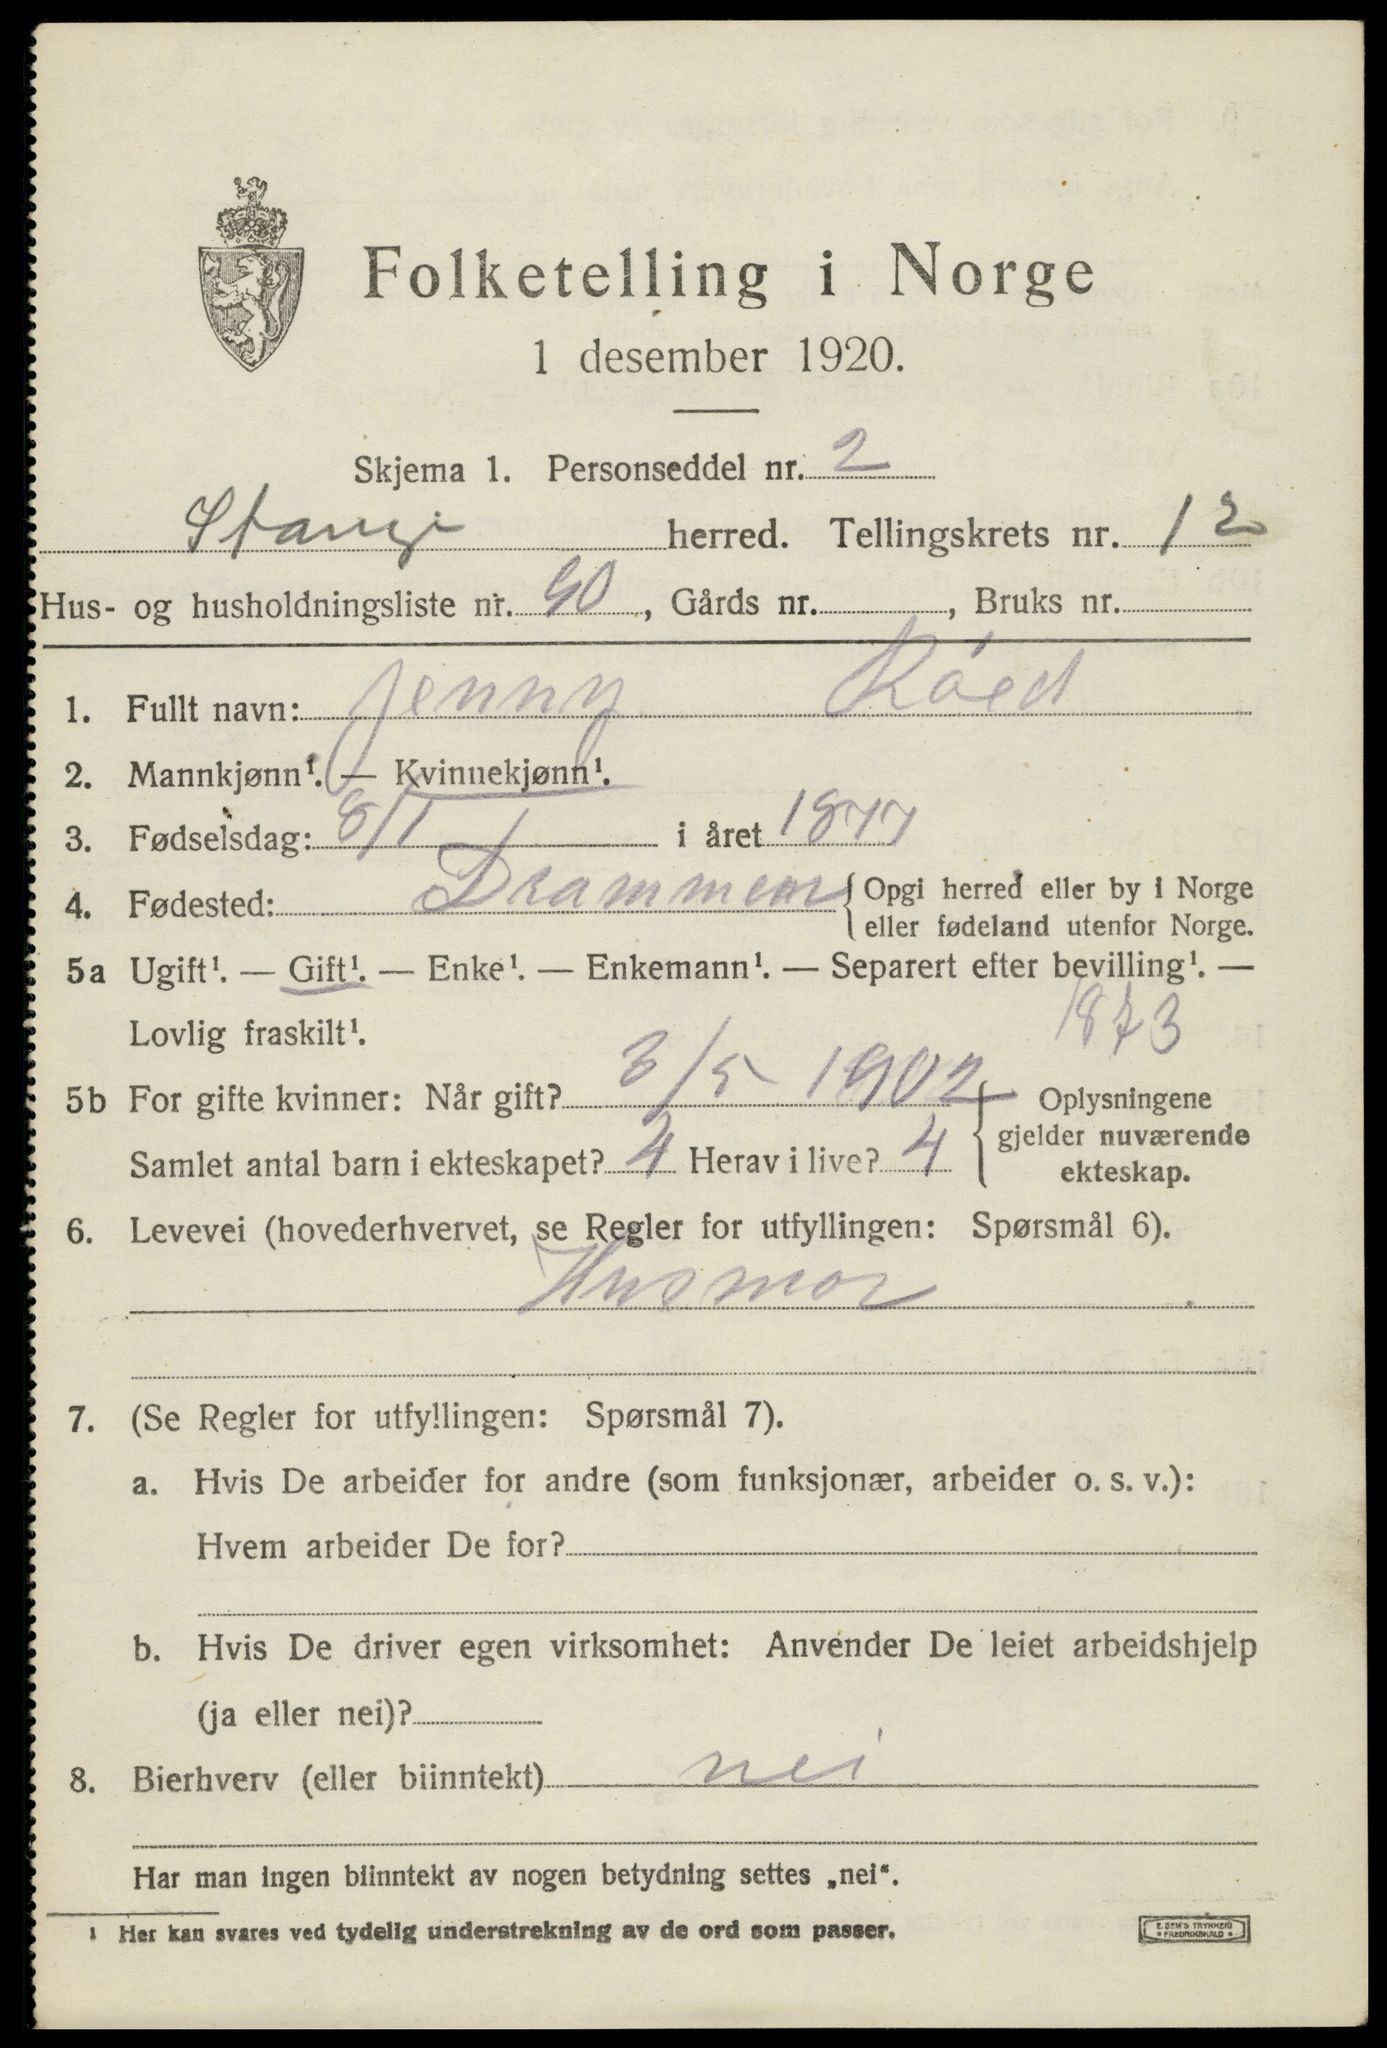 Folketelling i Norge
1 desember 1920.
Skjema 1. Personseddel nr. 2
Stange herred. Tellingskrets nr. 12
Hus- og husholdningsliste nr. 90, Gårds nr. , Bruks nr.
1. Fullt navn: Jenny Róed
2. Mannkjønn¹. — Kvinnekjønn¹.
3. Fødselsdag: 8/1 i året 1877
4. Fødested: Drammen {Opgi herred eller by i Norge
eller fødeland utenfor Norge.
5a Ugift¹. — Gift¹. — Enke¹. — Enkemann¹. — Separert efter bevilling¹. —
Lovlig fraskilt¹. 1873
5b For gifte kvinner: Når gift? 3/5 1902 { Oplysningene
gjelder nuværende
Samlet antal barn i ekteskapet? 4 Herav i live? 4 ekteskap.
6. Levevei (hovederhvervet, se Regler for utfyllingen: Spørsmål 6).
Husmor
7. (Se Regler for utfyllingen: Spørsmål 7).
a. Hvis De arbeider for andre (som funksjonær, arbeider o. s. v.):
Hvem arbeider De for?
b. Hvis De driver egen virksomhet: Anvender De leiet arbeidshjelp
(ja eller nei)?
8. Bierhverv (eller biinntekt) nei
Har man ingen biinntekt av nogen betydning settes „nei“.
¹ Her kan svares ved tydelig understrekning av de ord som passer.
E. SEM'S TRYKKERI
• FREDRIKSHALD •